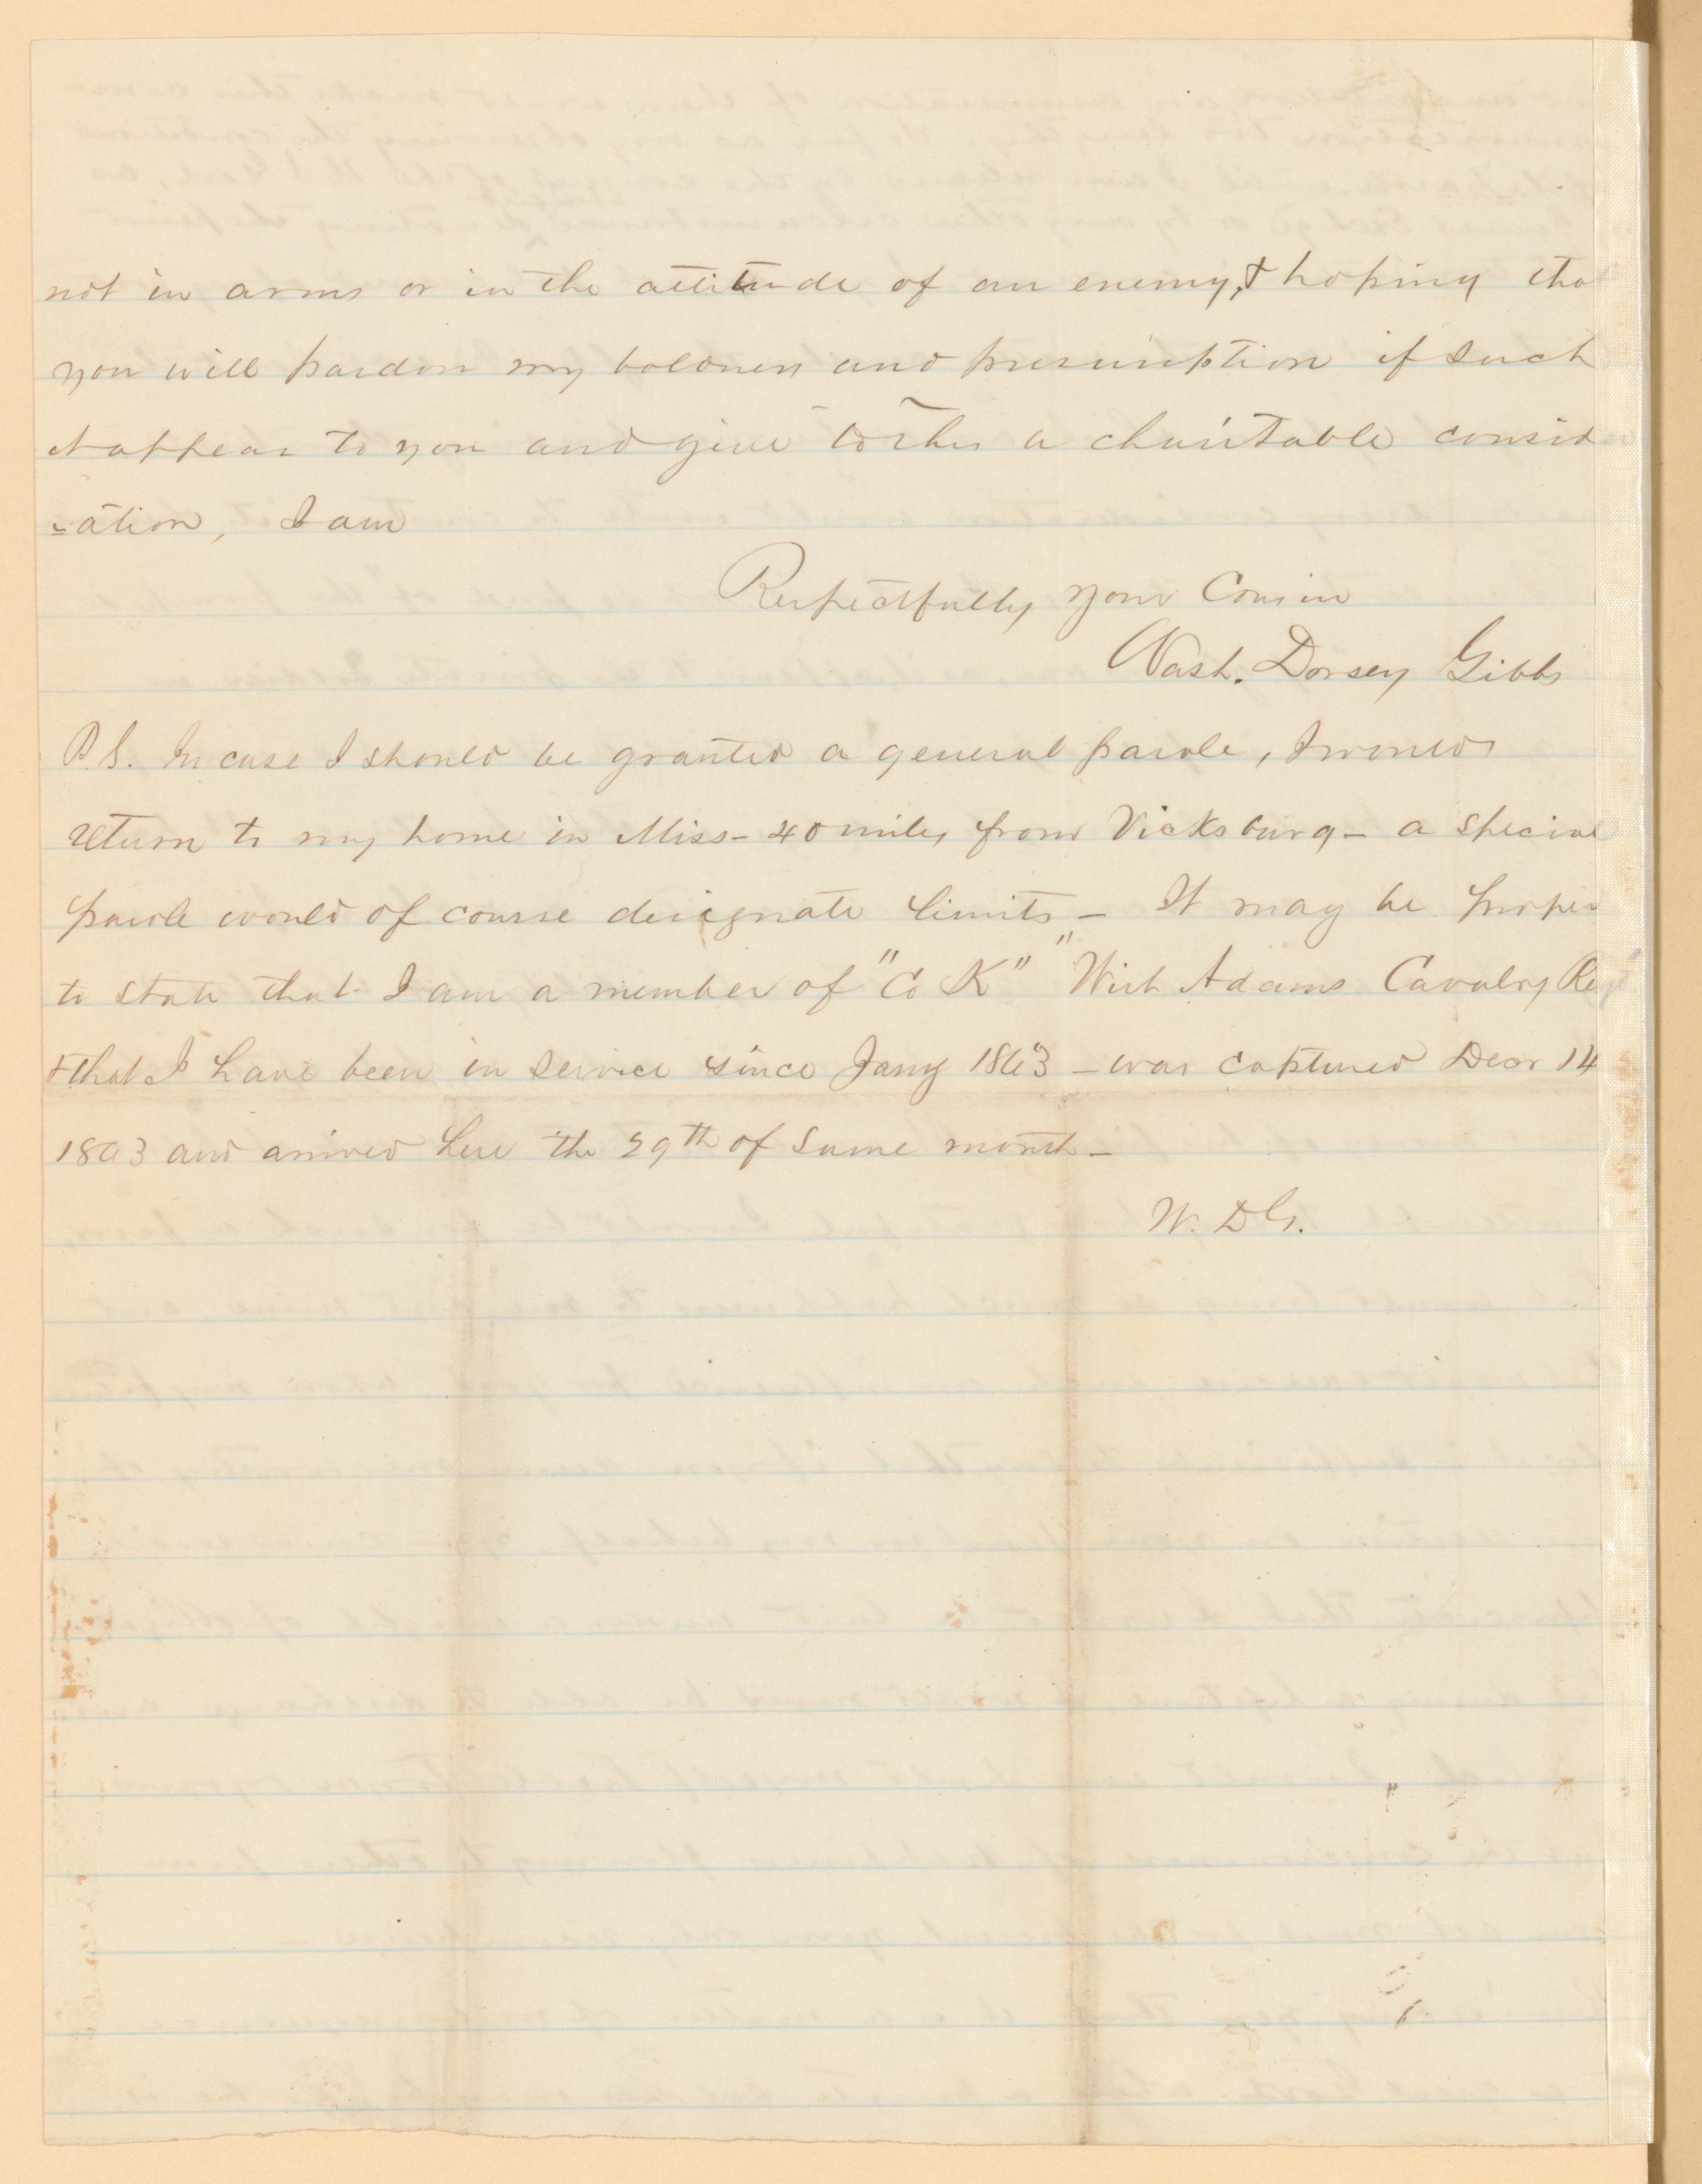 not in arms or in the attitude of an enemy, & hoping tha
you will pardon my boldness and presumption if such
it appear to you and give to this a charitable consid
=ation, I am
Respectfully your Cousin
Wash. Dorsey Gibbs
P.S. In case I should be granted a general parole, I would
return to my home in Miss- 40 miles from Vicksburg- a special
parole would of course designate limits - It may be proper
to state that I am a member of "Co K" "Wirt Adams Cavalry Reg
& that I have been in service since Jany 1863 - was captured Decr 14
1863 and arrived here the 29th of same month -
W. D G.